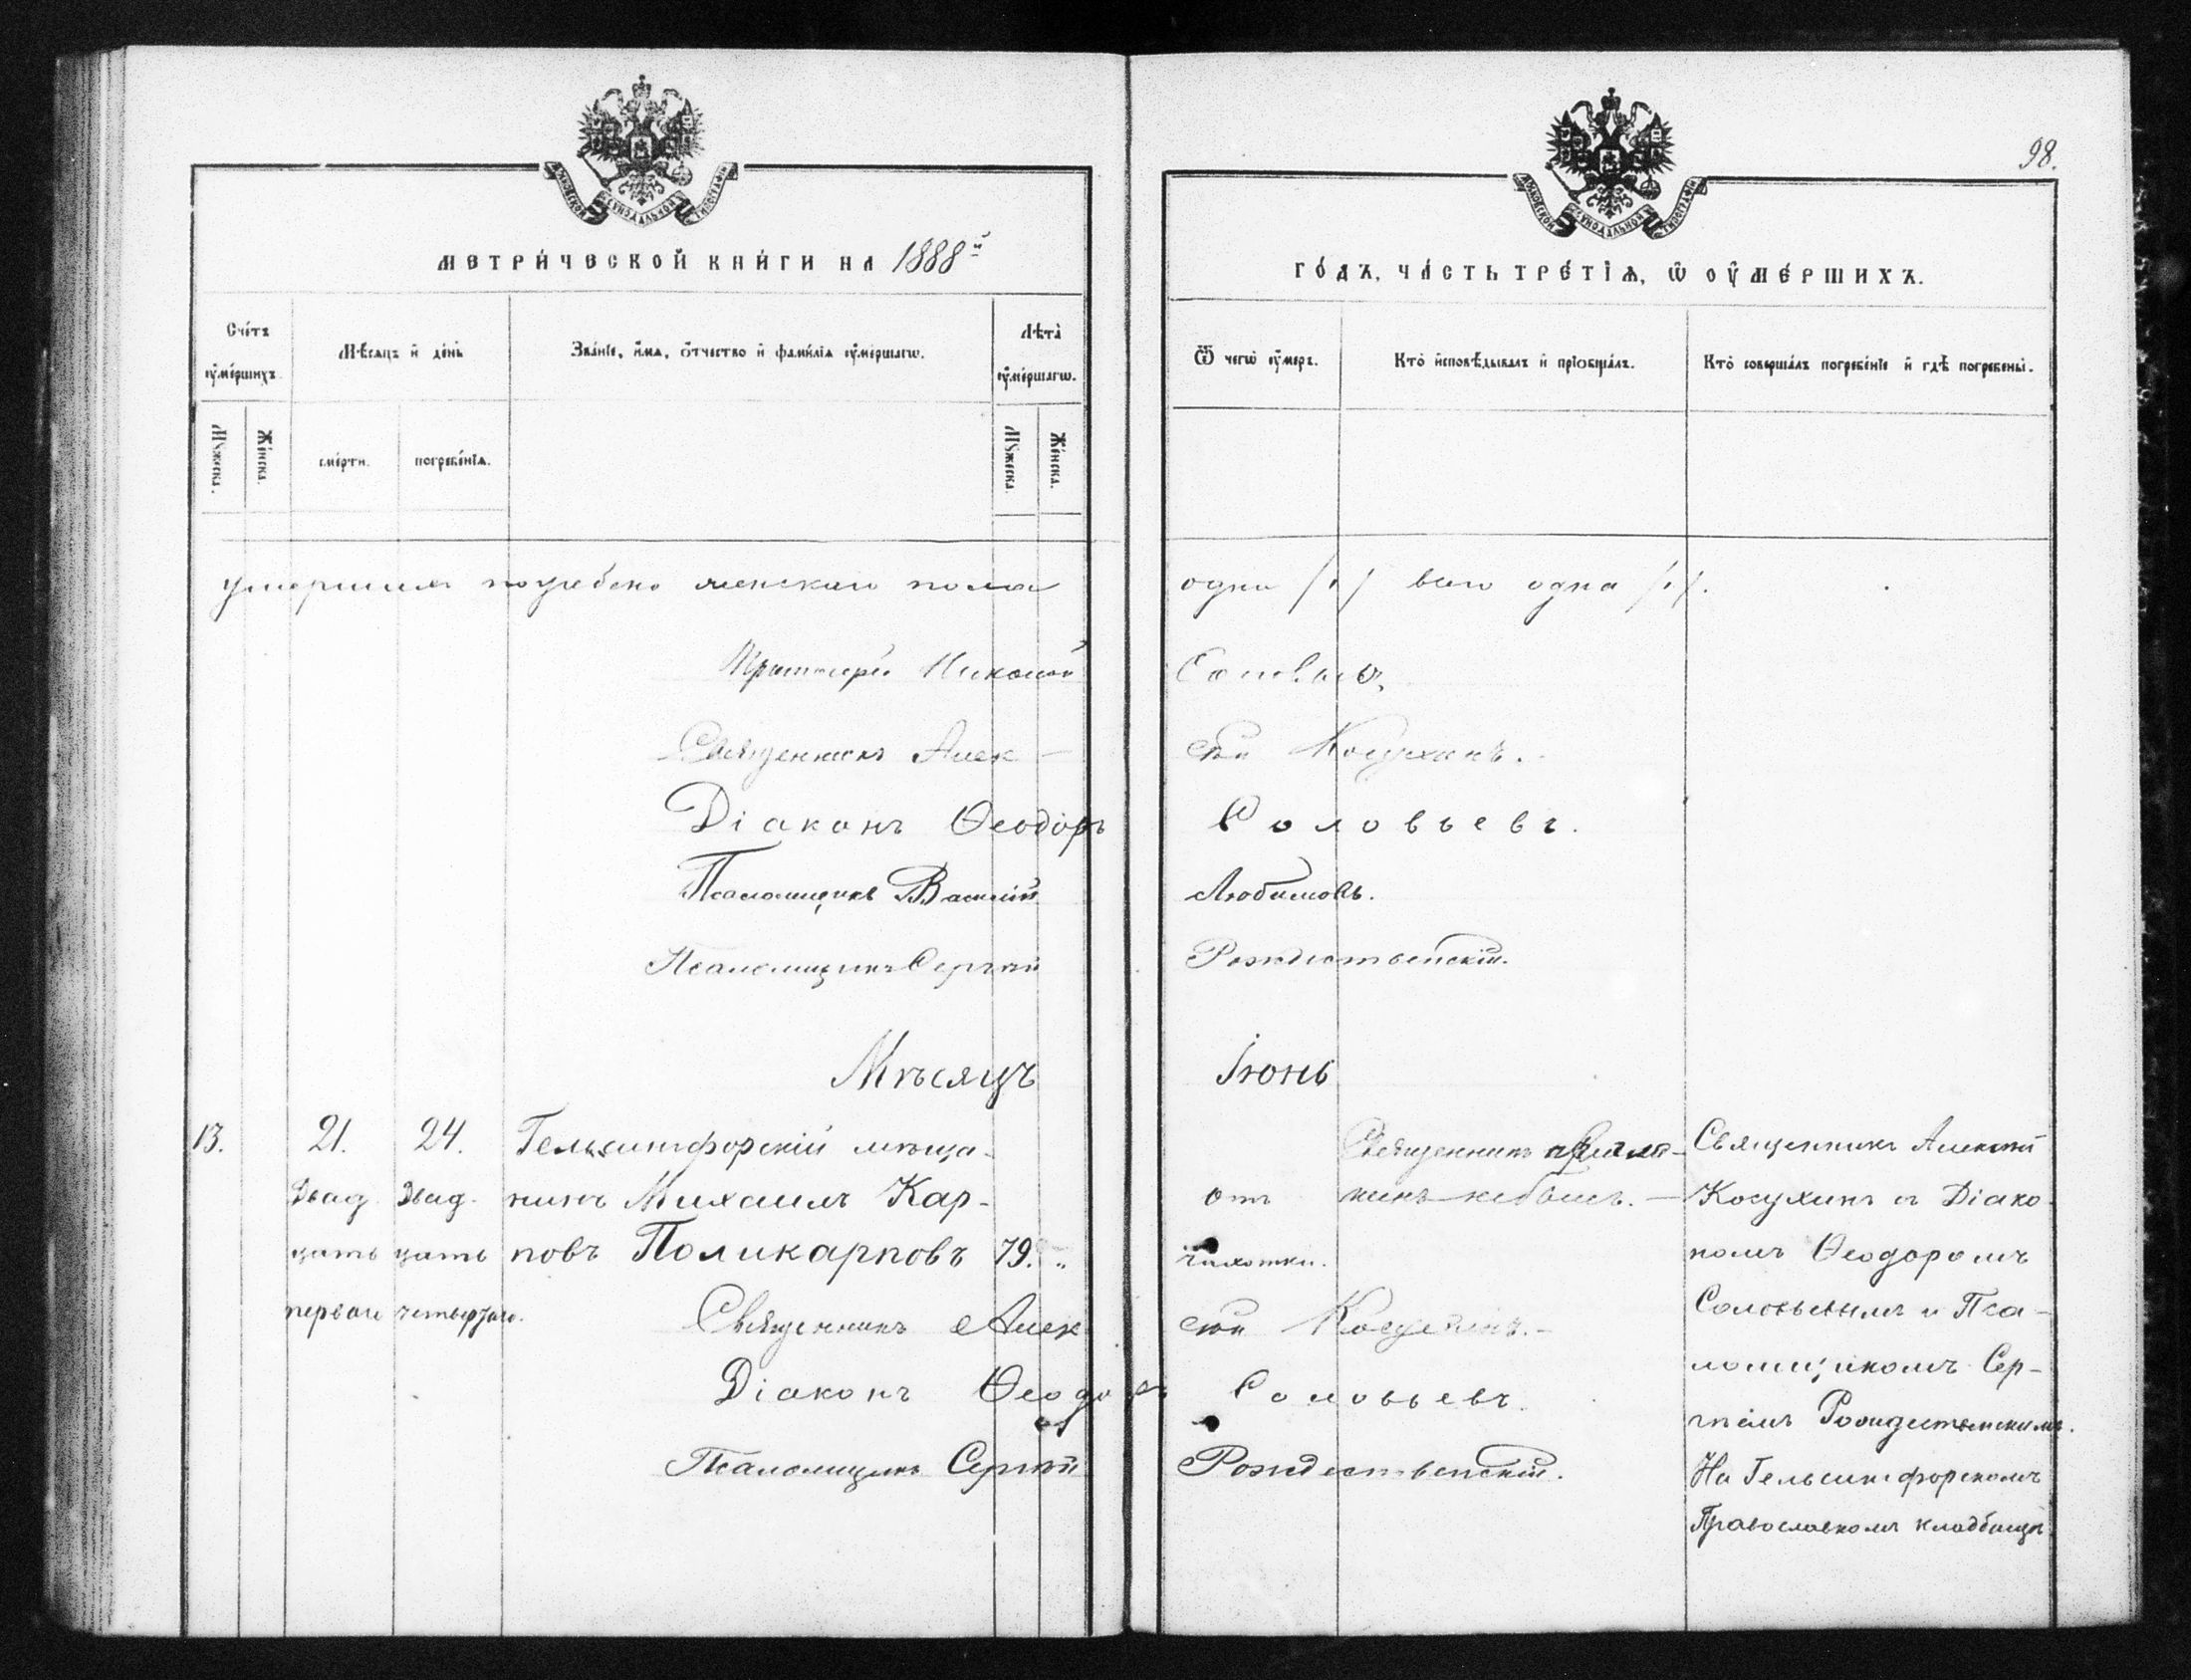 98.
МЕТРИ́ЧЕСКОЙ КНИ́ГИ НА 1888й
ГО́ДЪ, ЧА́СТЬ ТРЕ́ТІѦ, Ѡ ОУ҆МЕ́РШИХЪ.
Сче́тъ оу҆ме́ршихъ.
Мѣ́сяцъ и҆ де́нь
Зва́нїе, и҆́мя, ѻ҆́тчество и҆ фами́лїя оу҆ме́ршагѡ.
Лѣ́та оу҆ме́ршагѡ.
Ѿ чегѡ̀ оу҆́меръ.
Кто̀ и҆сповѣ́дывалъ и҆ прїѻбща́лъ.
Кто̀ соверша́лъ погребе́нїе и҆ гдѣ̀ погребены̀.
Мꙋ́жеска.
Же́нска.
сме́рти.
погребе́нїѧ.
Мꙋ́жеска.
Же́нска.
умершихъ погребено женскаго пола одна /1/ всего одна /1/.
Протоіерей Николай
Священникъ Алексѣй Косухинъ.
Діаконъ Ѳеодоръ Соловьевъ.
Псаломщикъ Василій Любимовъ.
Псаломщикъ Сергѣй Рождественскій.
Мѣсяцъ Іюнь
13.
21.
Двад
цать
перваго
24.
Двад
цать
четвертаго.
Гельсингфорскій мѣща-
нинъ Михаилъ Кар-
повъ Поликарповъ
79.
отъ
чахотки.
Священникъ
не былъ.
Священникъ Алексѣй
Косухинъ съ Діако
номъ Ѳеодоромъ
Соловьевымъ и Пса-
ломщикомъ Сер-
гѣемъ Рождественскимъ.
На Гельсингфорскомъ
Православномъ кладбищѣ.
Священникъ Алексѣй Косухинъ.
Діаконъ Ѳеодоръ Соловьевъ.
Псаломщикъ Сергѣй Рождественскій.